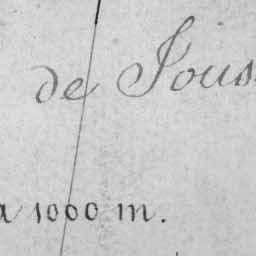 de Jous
a 1000 m.